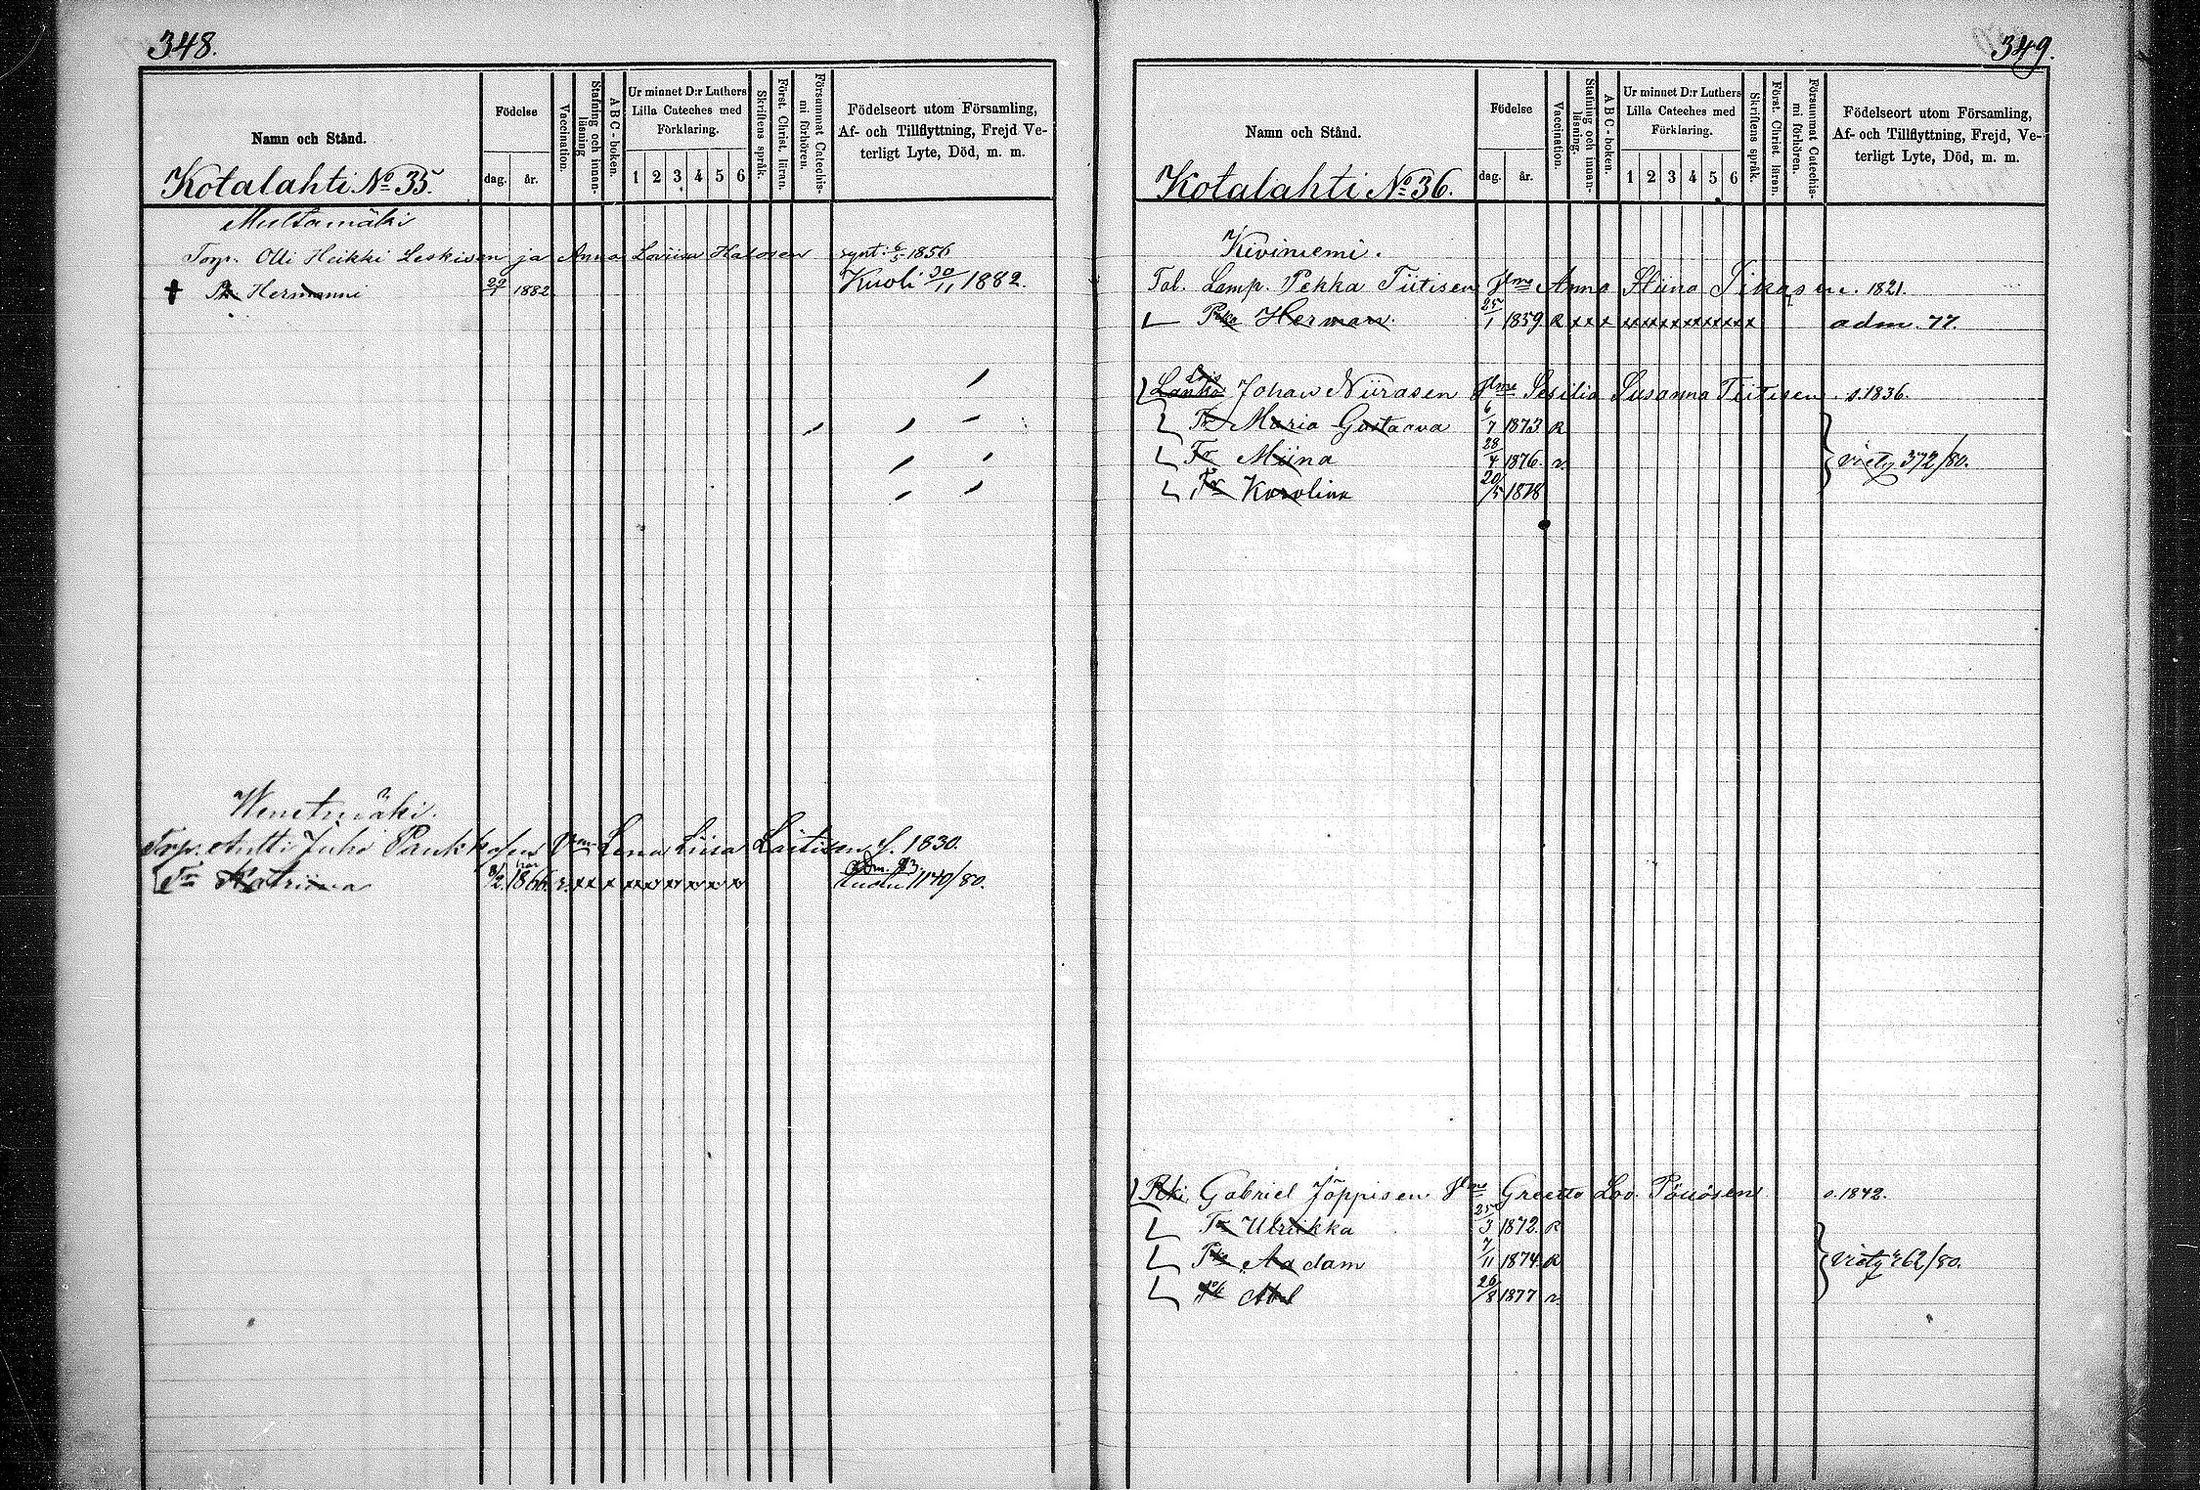 348.
Namn och Stånd.
Födelse
dag. år.
Vaccination.
Stafning och innan-läsning
ABC-boken.
Ur minnet D:r Luthers
Lilla Cateches med
Förklaring.
1 2 3 4 5 6
Skriftens språk.
Först. Christ. läran.
Försummat Catechis-mi förhören.
Födelseort utom Församling,
Af- och Tillflyttning, Frejd Ve-
terligt Lyte, Död, m. m.
Kotalahti No 35.
Multamäki
Torp. Olli Heikki Leskisen ja Anna Loviisa Halosen synt. 6/5 1856
Hermanni 1882 Kuoli 30/11 1882.
Wenetmäki.
Torp. Antti Juho Pankkosen Lena Liisa Laitisen s. 1830.
Tr Katriina 1866 1140/80.
349.
Namn och Stånd.
Födelse
dag. år.
Vaccination.
Stafning och innan-läsning.
ABC-boken.
Ur minnet D:r Luthers
Lilla Cateches med
Förklaring.
1 2 3 4 5 6
Skriftens språk.
Först. Christ. läran.
Försummat Catechis-mi förhören.
Födelseort utom Församling,
Af- och Tillflyttning, Frejd, Ve-
terligt Lyte, Död, m. m.
Kotalahti No 36.
Kiviniemi.
Tal. Lamp. Pekka Tiitisen Anna Stiina Sikasen. 1821.
Herman. 25/1 1859 R x x x x x x x x x x x x adm. 77.
Johan Niirasen Sesilia Susanna Tiitisen s. 1836.
Tr Maria Gustaava 6/7 1873 R
Tr Miina 28/4 1876. r. 372/80.
Tr Karolina 20/5 1878
Rki. Gabriel Jöppisen Greetta Lov. Pöllösen s. 1842.
Tr Ulriikka 25/3 1872. R
Aadam 7/11 1874. R 262/80.
Abel 26/8 1877 r.